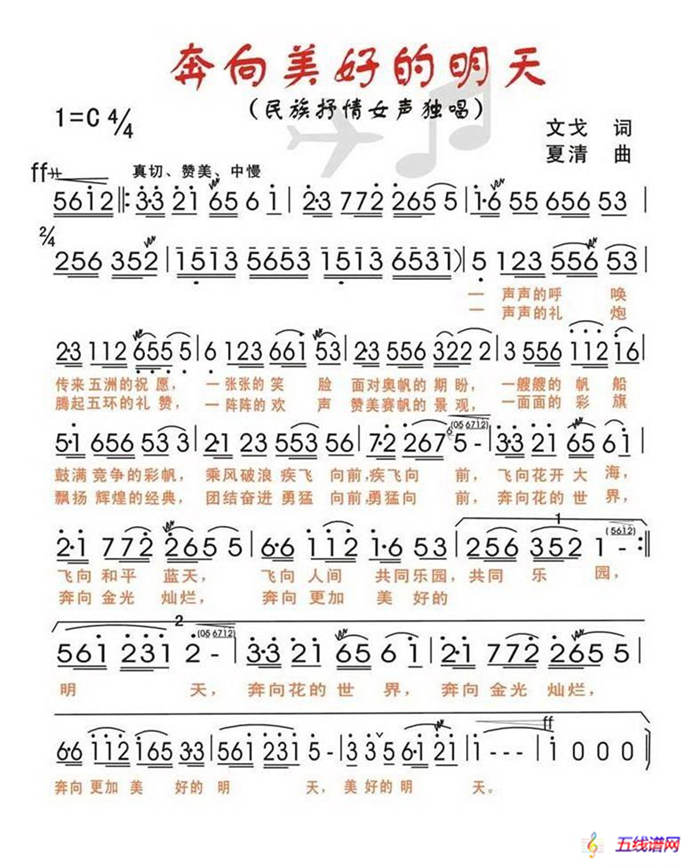 奔向美好的明天
（民族抒情女声独唱）
1=C 4/4
文戈 词
夏清 曲
ff 真切、赞美、中慢
5612 ‖: 3·3 21 656 1 | 2·3 772 2655 | 1·6 55 656 53 |
2/4
256 352 | 1513 5653 1513 6531 ) 5 123 556 53 |
一 声声的呼 唤
一 声声的礼 炮
2·3 112 655 5 | 6 123 661 53 | 2·3 556 322 2 | 3 556 112 16 |
传来 五洲的祝 愿， 一张张的 笑 脸 面对奥帆的 期 盼， 一艘艘的 帆 船
腾起 五环的礼 赞， 一阵阵的 欢 声 赞美赛帆的 景 观， 一面面的 彩 旗
5·1 656 533 | 2·3 556 356 | 7·2 267 5 - | 3·3 21 656 1 |
(05 6712)
鼓满 竞争的彩帆， 乘风破浪 疾飞 向前，疾飞向 前， 飞向花开 大 海，
飘扬 辉煌的经典， 团结奋进 勇猛 向前，勇猛向 前， 奔向花的 世 界，
2·1 772 2655 | 6·6 112 1·6 53 | 256 352 1 - :‖
1
(5612)
飞向 和平 蓝天， 飞向 人间 共同乐园，共同 乐 园，
奔向 金光 灿烂， 奔向 更加 美 好的
2
(05 6712)
561 231 2 - | 3·3 21 656 1 | 2·1 772 2655 |
明 天， 奔向花的 世 界， 奔向 金光 灿烂，
ff
6·6 112 165 3·3 | 561 231 5 · | 3 35 6·1 21 | 1 - - - | 1 0 0 0 ‖
奔向 更加 美 好的 明 天， 美 好的 明 天。
五线谱网